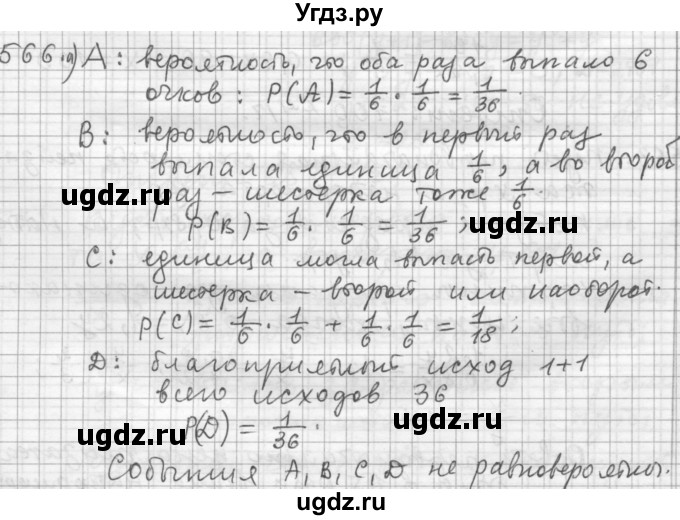 Угдз.ру
566.а) А: вероятность, что оба раза выпало 6
очков: P(A) = 1/6 · 1/6 = 1/36.
В: вероятность, что в первый раз
выпала единица 1/6, а во второй
раз – шестерка тоже 1/6.
P(B) = 1/6 · 1/6 = 1/36;
С: единица могла выпасть первой, а
шестерка – второй или наоборот.
P(C) = 1/6 · 1/6 + 1/6 · 1/6 = 1/18;
D: благоприятный исход 1+1
всего исходов 36
P(D) = 1/36.
События A, B, C, D не равновероятны.
ugdz.ru
ugdz.ru
ugdz.ru
ugdz.ru
ugdz.ru
ugdz.ru
ugdz.ru